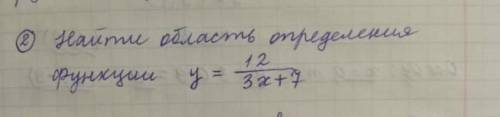 ② Найти область определения
функции y = 12/(3x+7)